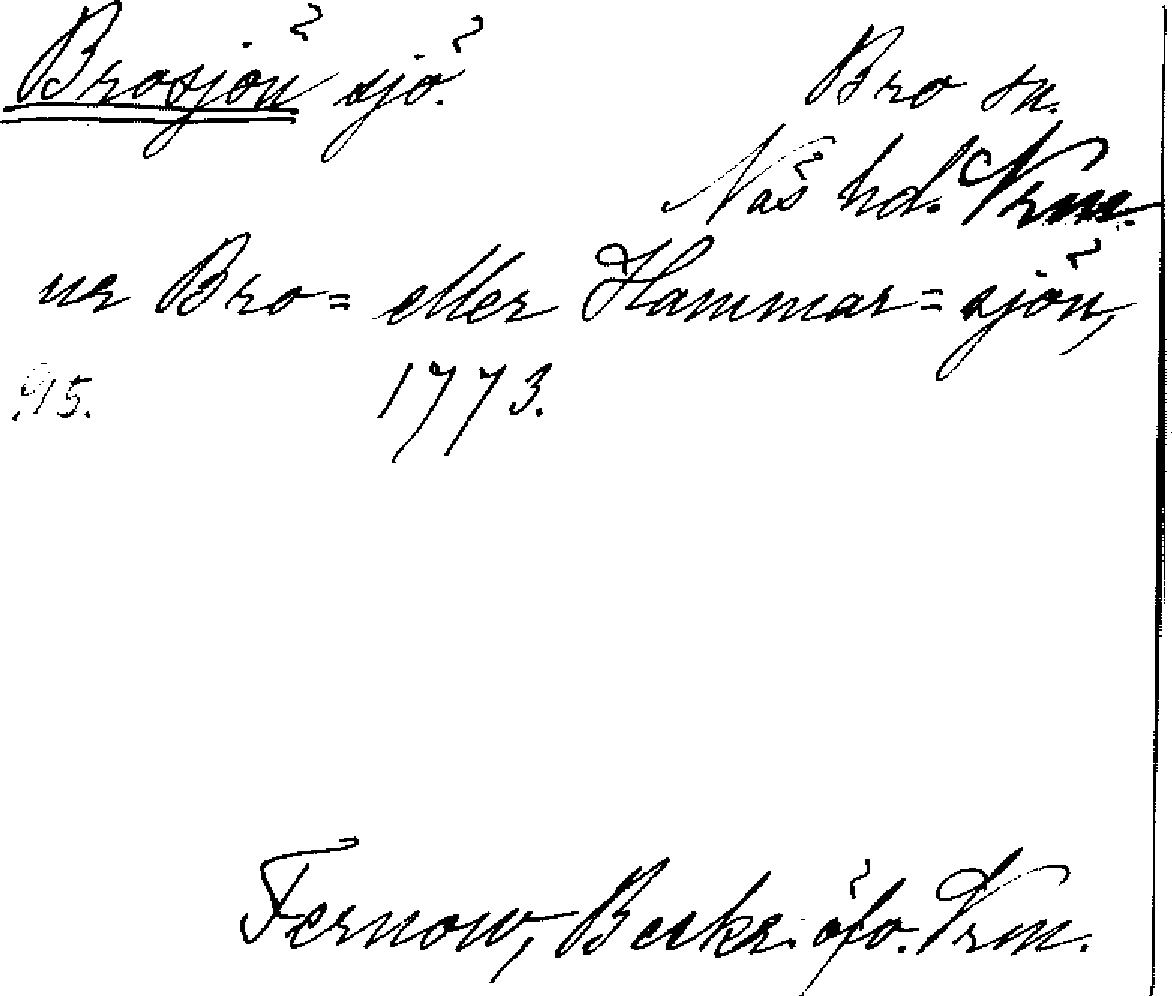 Brosjön sjö. Bro sn.
Näs hd. Vrm.
ur Bro= eller Hammar=sjön,
95. 1773.
Fernow, Beskr. öfv. Vrm.